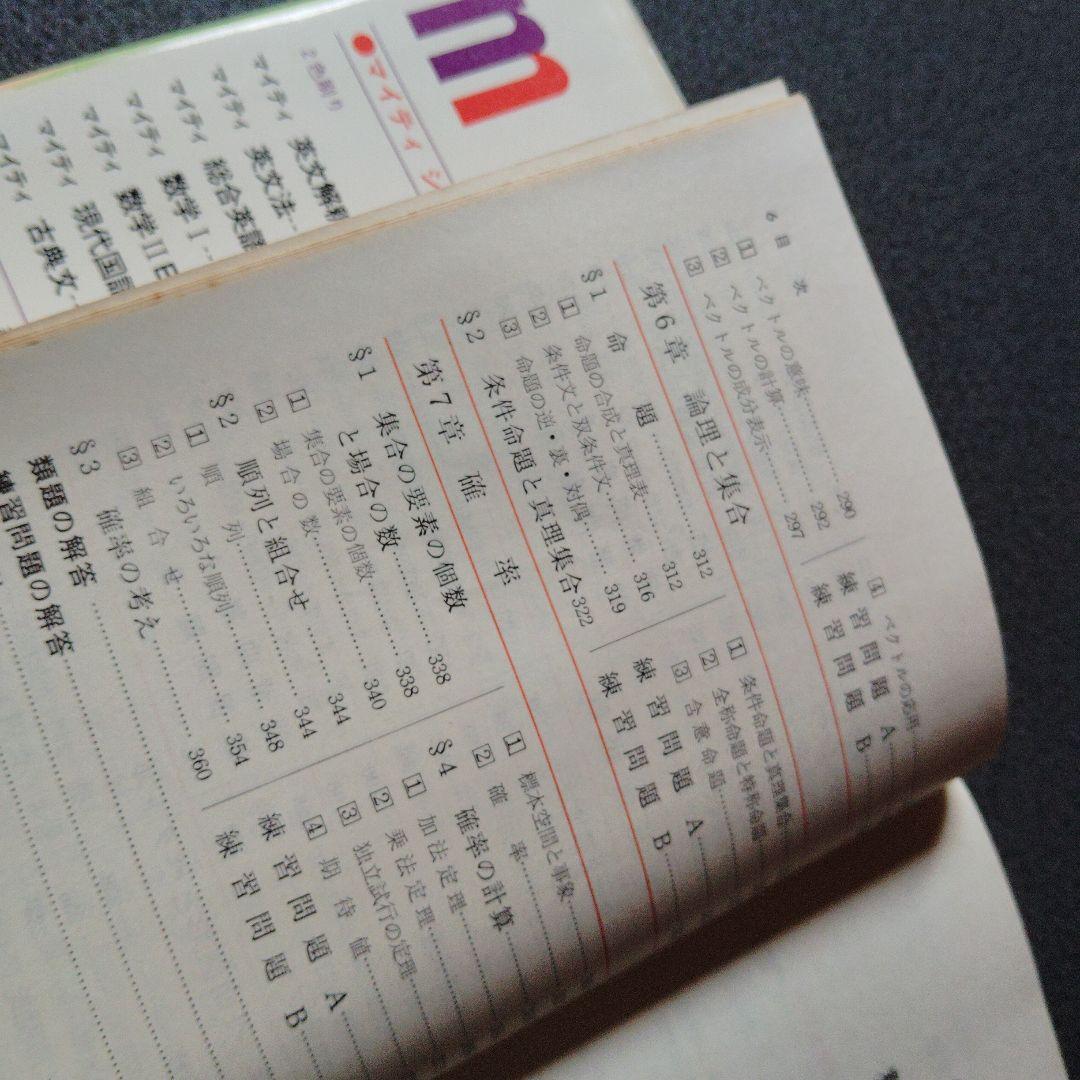 m
●マイティ シ
2色刷り
マイティ 英文解釈
マイティ 英文法
マイティ 総合英語
マイティ 数学I
マイティ 数学II
マイティ 現代国語
マイティ 古典文
6 目 次
1 ベクトルの意味 290
2 ベクトルの計算 292
3 ベクトルの成分表示 297
4 ベクトルの応用
練習問題 A
練習問題 B
第6章 論理と集合
§1 命題 312
1 命題の合成と真理表 312
2 条件文と双条件文 316
3 命題の逆・裏・対偶 319
§2 条件命題と真理集合 322
1 条件命題と真理集合
2 全称命題と特称命題
3 含意命題
練習問題 A
練習問題 B
第7章 確率
§1 集合の要素の個数
と場合の数 338
1 集合の要素の個数 338
2 場合の数 340
§2 順列と組合せ 344
1 順列 344
2 いろいろな順列 348
3 組合せ 354
§3 確率の考え 360
1 標本空間と事象
2 確率
§4 確率の計算
1 加法定理
2 乗法定理
3 独立試行の定理
4 期待値
練習問題 A
練習問題 B
類題の解答
練習問題の解答